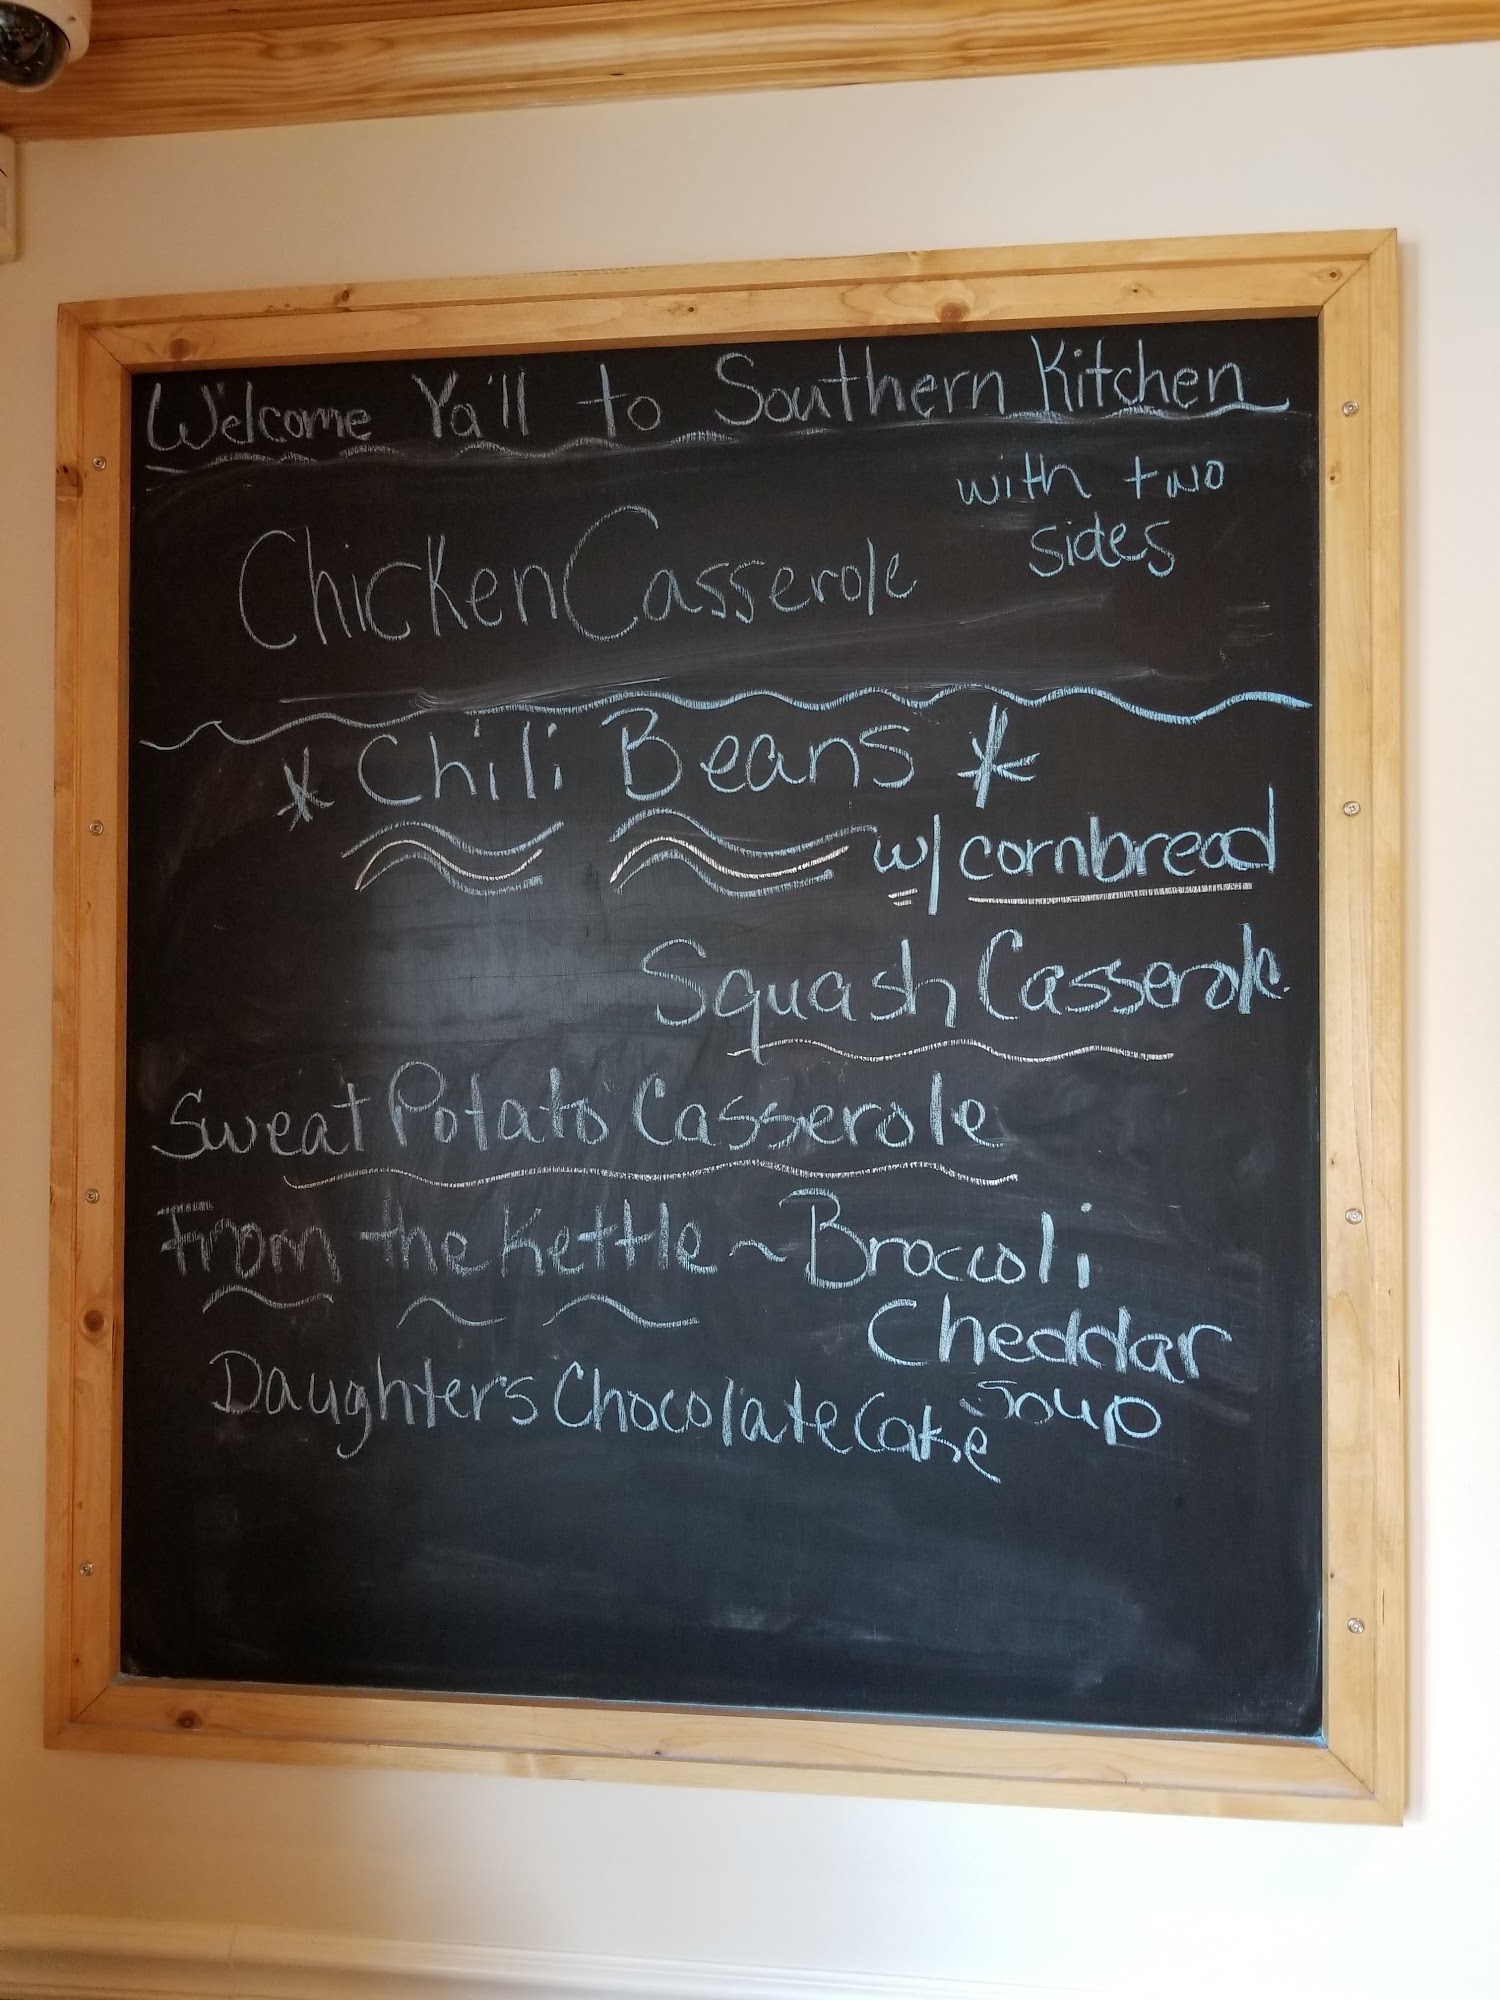 Welcome Ya'll to Southern Kitchen
with two
sides
Chicken Casserole
* Chili Beans *
w/ cornbread
Squash Casserole
Sweat Potato Casserole
From the Kettle ~ Broccoli
Cheddar
Soup
Daughters Chocolate Cake